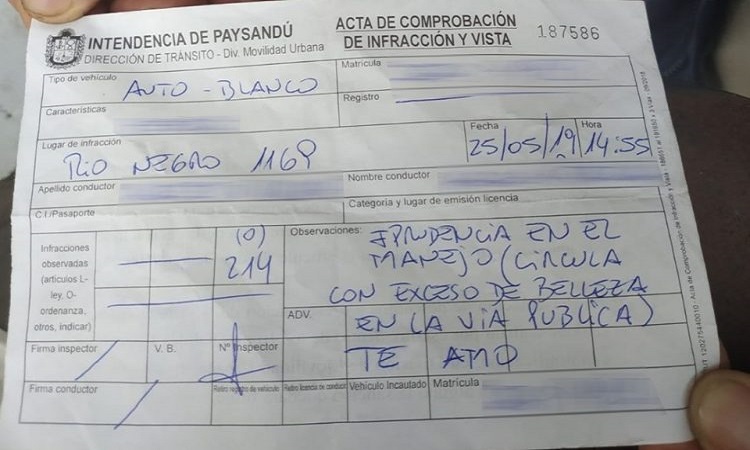 INTENDENCIA DE PAYSANDÚ
DIRECCIÓN DE TRÁNSITO - Div. Movilidad Urbana
ACTA DE COMPROBACIÓN
DE INFRACCIÓN Y VISTA
187586
Tipo de vehículo
AUTO - BLANCO
Matrícula
Características
Registro
Lugar de infracción
RIO NEGRO 1169
Fecha
25/05/19
Hora
14:55
Apellido conductor
Nombre conductor
C.I/Pasaporte
Categoría y lugar de emisión licencia
Infracciones
observadas
(artículos L-
ley, O-
ordenanza,
otros, indicar)
(O)
214
Observaciones:
EN EL
MANEJO (CIRCULA
CON EXCESO DE BELLEZA
EN LA VIA PUBLICA)
ADV.
TE AMO
Firma inspector
V. B.
Nº Inspector
Firma conductor
Retiro registro de vehículo
Retiro licencia de conducir
Vehículo Incautado
Matrícula